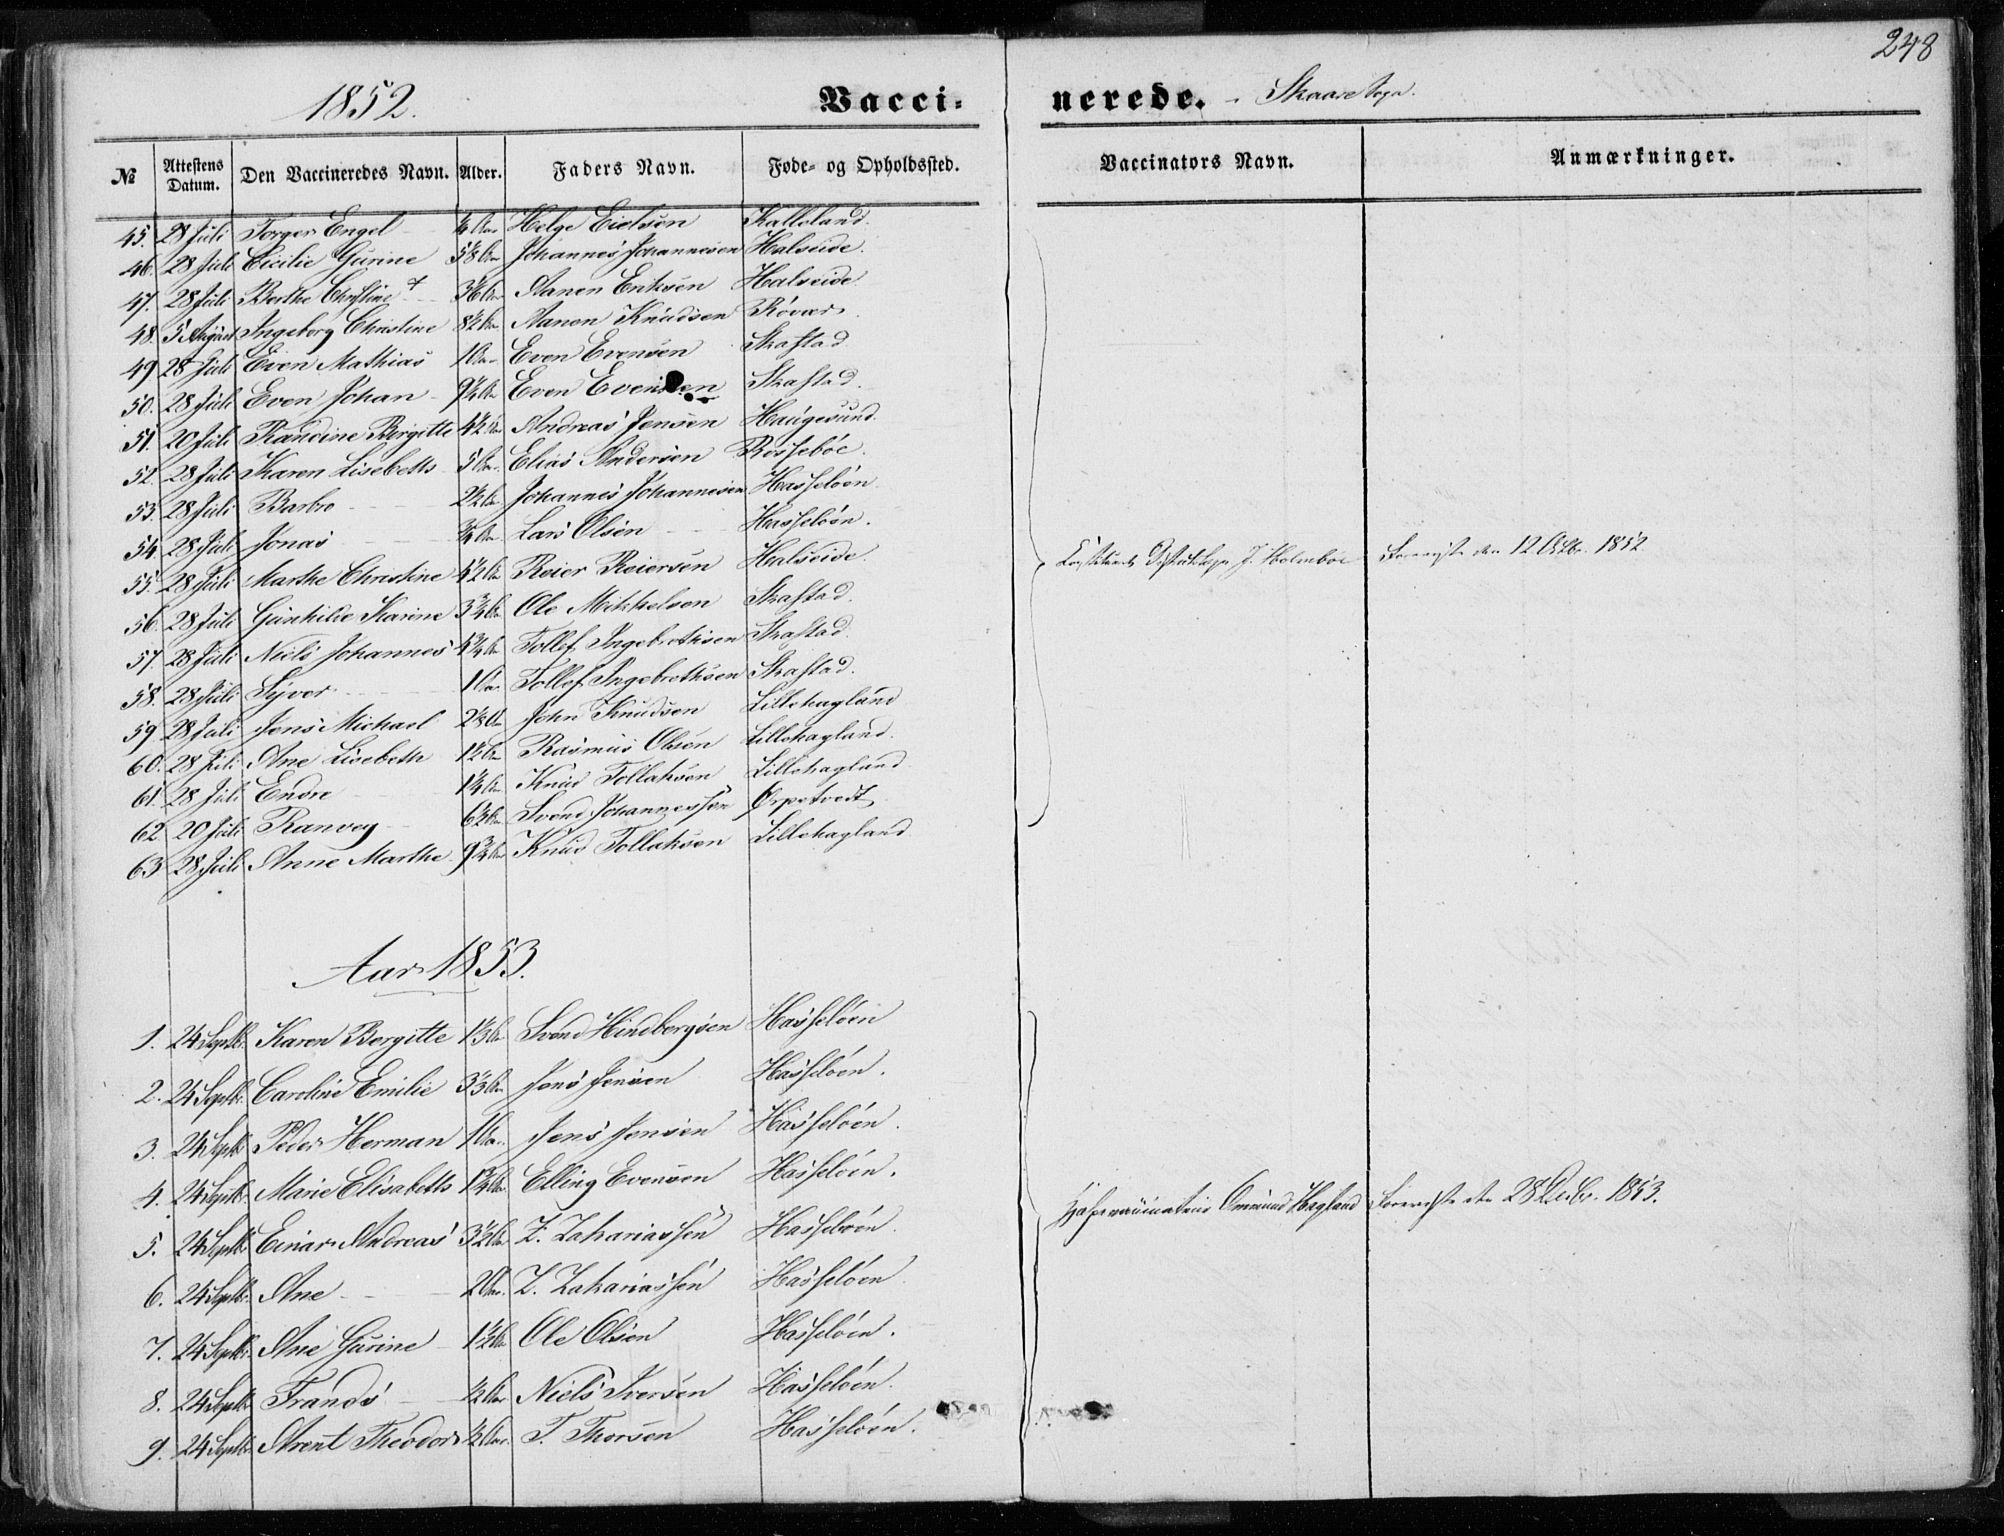 248
1852. Vacci= nerede. Skaare Sogn.
№ Attestens Datum. Den Vaccineredes Navn. Alder. Faders Navn. Føde- og Opholdssted. Vaccinators Navn. Anmærkninger.
45. 28 Juli Torger Engel ¼ Aar Helge Eielsen Kalleland.
46. 28 Juli Cicilie Gurine 5/8 Aar Johannes Johannesen Halseide.
47. 28 Juli Berthe Christine Aanen Eriksen Halseide
48. 5 August Ingeborg Christine 8½ Aar Aanen Knudsen Røvær.
49 28 Juli Even Mathias 1 Aar Even Evensen Skastad
50. 28 Juli Even Johan Even Evensen Skastad.
51. 20 Juli Randine Bergitte 4½ Aar Andreas Jensen Haugesund.
52. 28 Juli Karen Lisebeth 5 Aar. Elias Andersen Rossebøe.
53. 28 Juli Barbro 2½ Aar Johannes Johannesen Hasseløen
54. 28 Juli Jonas ¾ Aar Lars Olsen Hasseløen.
55. 28 Juli Marthe Christine 4½ Aar Reier Reiersen Halseide. Constitueret Districtslæge J. Holmboe Foreviist den 12 Octbr. 1852
56. 28 Juli Gunhilde Karine 3¾ Aar Ole Mikkelsen Skastad.
57. 28 Juli Niels Johannes 4¾ Aar Tollef Ingebrethsen Skastad.
58. 28 Juli Syver 1 Aar. Tollef Ingebrethsen Skastad.
59 28 Juli Jens Michael John Knudsen Lillehagland
60. 28 Juli Ane Lisebeth 1½ Aar Rasmus Olsen Lillehagland.
61. 28 Juli Endre 1¼ Aar Knud Tollaksen Lillehagland
62. 20 Juli Ranvey 6½ Aar Svend Johannessen Ørpetvedt
63 28 Juli Anne Marthe 9¾ Aar Knud Tollaksen Lillehagland
Aar 1853.
1. 24 Septbr. Karen Bergitte 1⅓ Aar Svend Hindbergsen Hasseløen
2. 24 Septbr. Caroline Emilie 3⅓ Aar Jens Jensen Hasseløen.
3. 24 Septbr Peder Herman 1 Aar. Jens Jensen Hasseløen.
4. 24 Septbr. Marie Elisabeth 1¾ Aar Elling Evensen Hasseløen. Hjelpevaccinateur Ommund Hagland Foreviist den 28 Decbr. 1853.
5. 24 Septbr Einar Andreas 3½ Aar Z. Zakariassen Hasseløen.
6. 24 Septbr. Ane 2 Aar. Z. Zakariassen Hasseløen
7. 24 Septbr. Ane Gurine 1½ Aar Ole Olsen Hasseløen.
8. 24 Septbr Frands ½ Aar Niels Iversen Hasseløen.
9. 24 Septbr Arent Theodor ½ Aar. T. Thorsen Hasseløen.